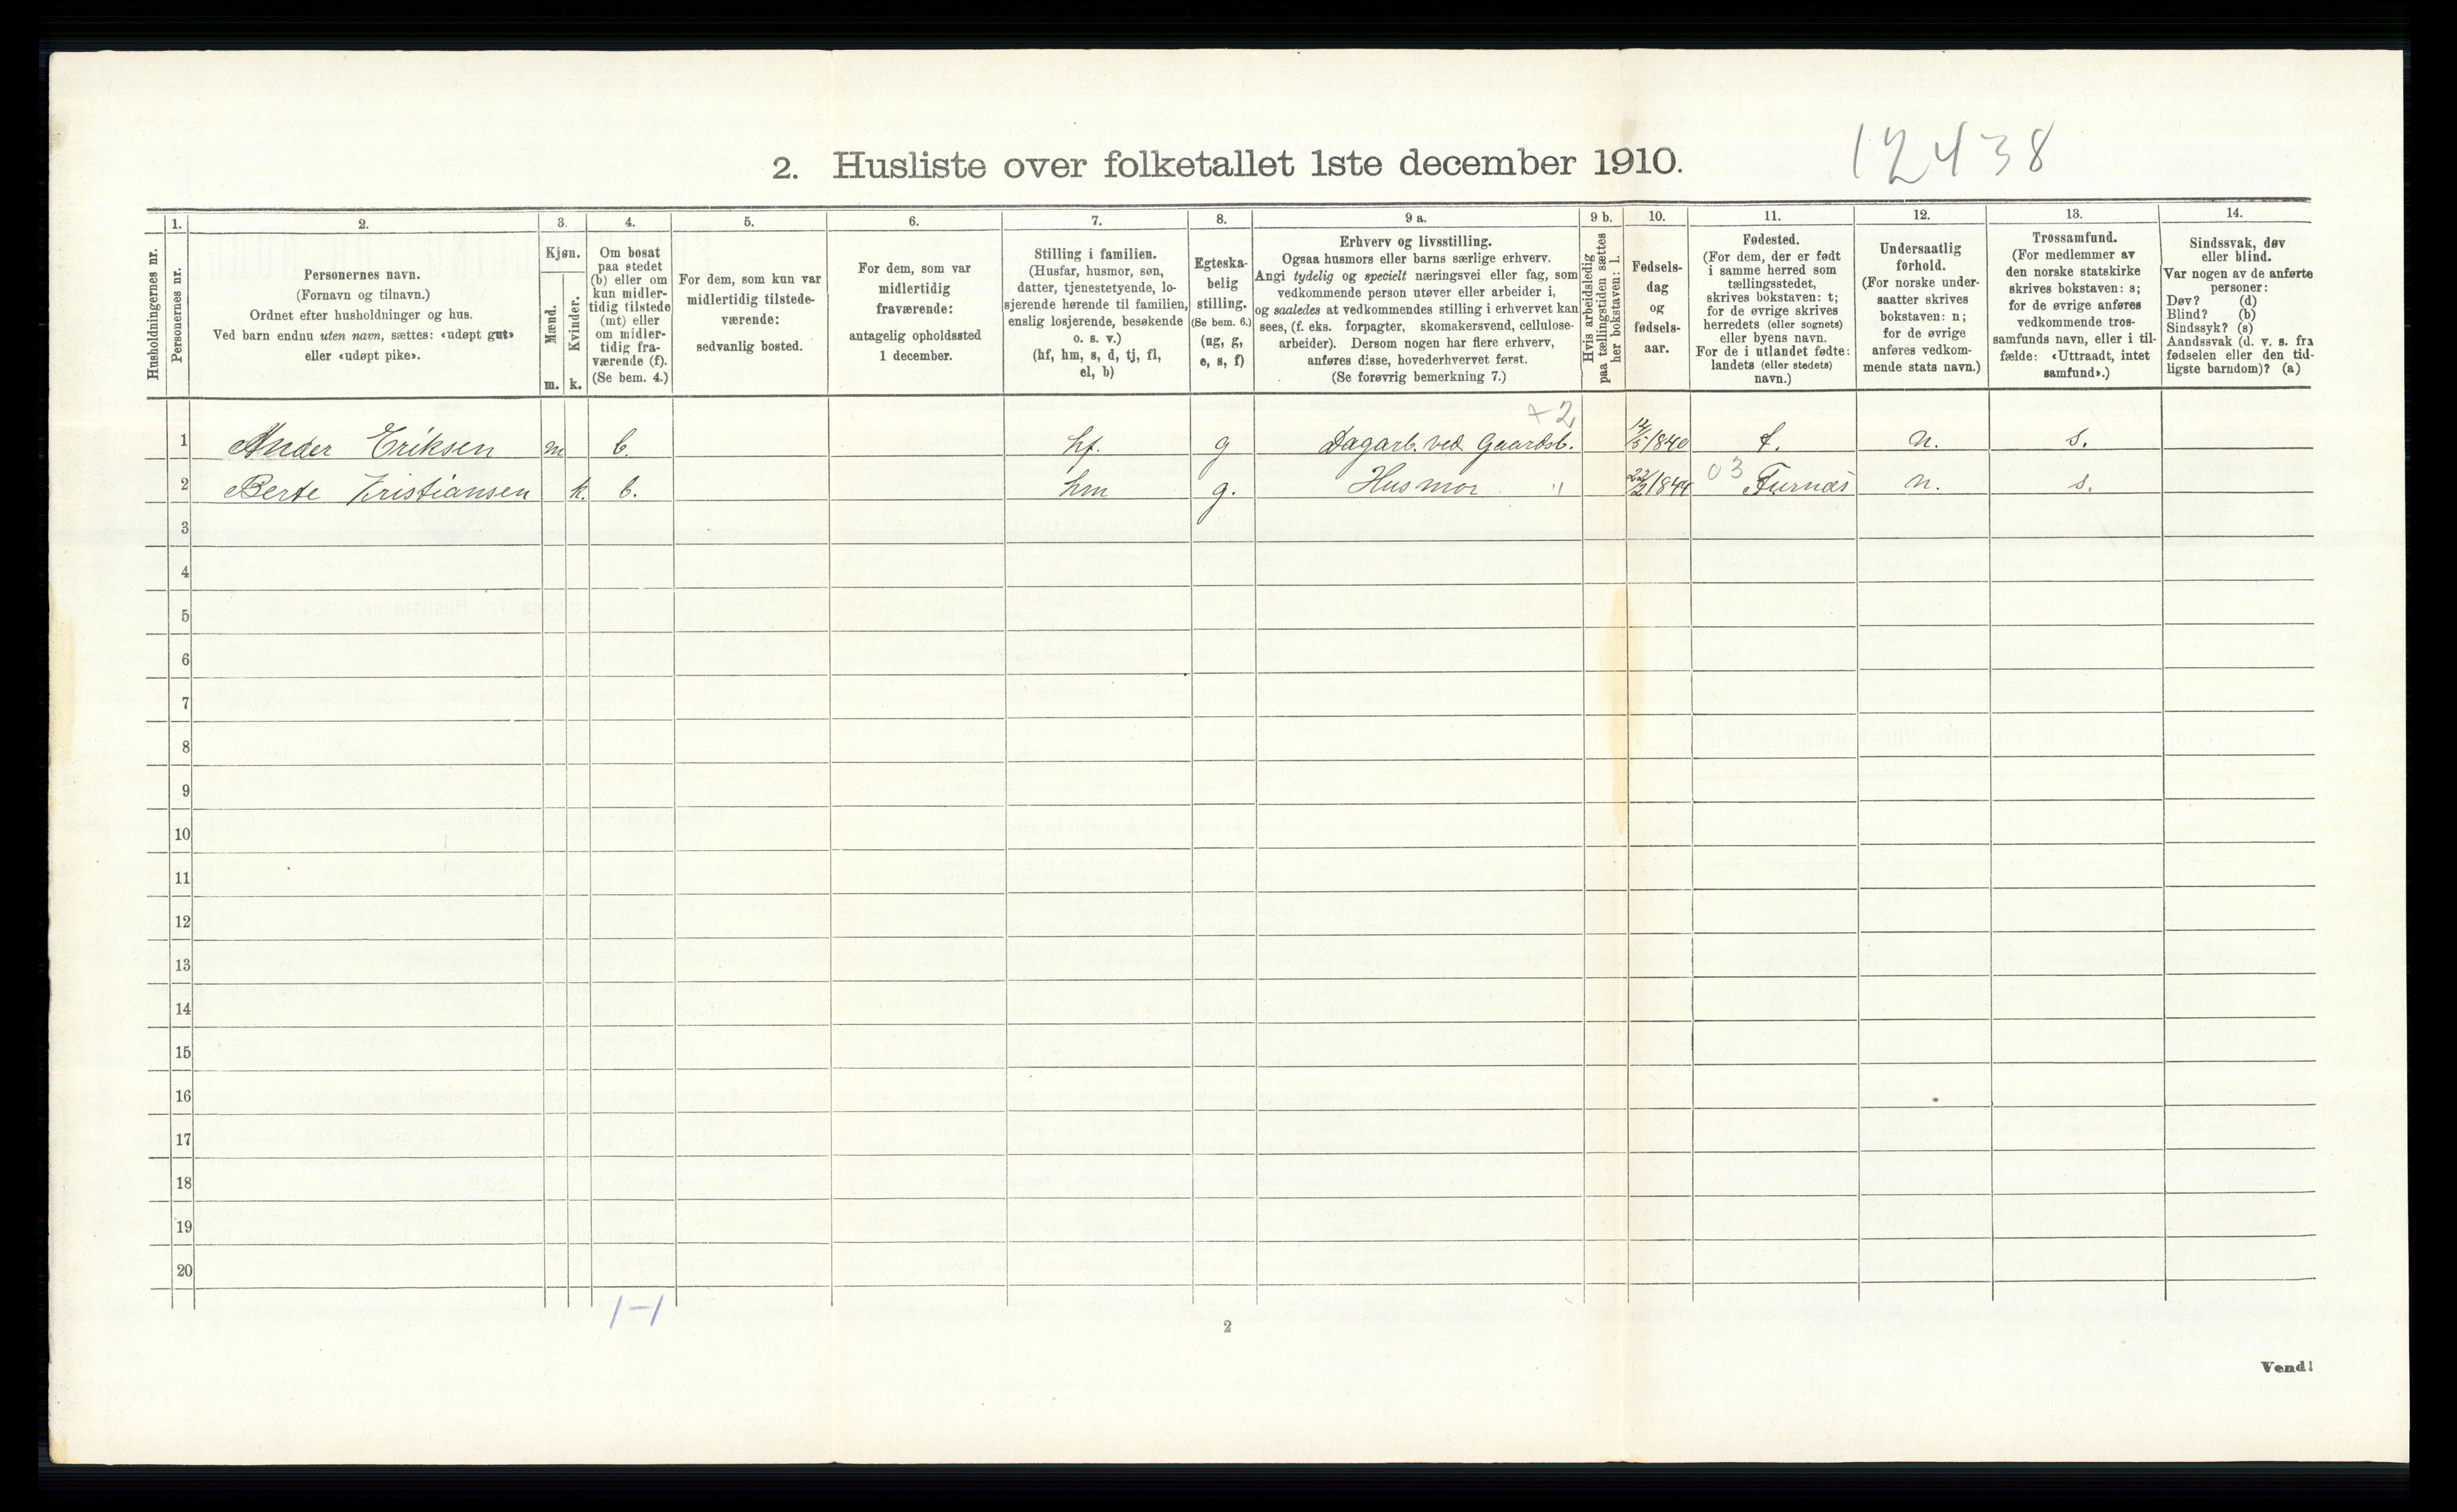 12438
2. Husliste over folketallet 1ste december 1910.
Husholdningernes nr.
1.
Personernes nr.
2.
Personernes navn.
(Fornavn og tilnavn.)
Ordnet efter husholdninger og hus.
Ved barn endnu uten navn, sættes: «udøpt gut»
eller «udøpt pike».
3.
Kjøn.
Mænd.
m.
Kvinder.
k.
4.
Om bosat
paa stedet
(b) eller om
kun midler-
tidig tilstede
(mt) eller
om midler-
tidig fra-
værende (f).
(Se bem. 4.)
5.
For dem, som kun var
midlertidig tilstede-
værende:
sedvanlig bosted.
6.
For dem, som var
midlertidig
fraværende:
antagelig opholdssted
1 december.
7.
Stilling i familien.
(Husfar, husmor, søn,
datter, tjenestetyende, lo-
sjerende hørende til familien,
enslig losjerende, besøkende
o. s. v.)
(hf, hm, s, d, tj, fl,
el, b)
8.
Egteska-
belig
stilling.
(Se bem. 6.)
(ug, g,
e, s, f)
9 a.
Erhverv og livsstilling.
Ogsaa husmors eller barns særlige erhverv.
Angi tydelig og specielt næringsvei eller fag, som
vedkommende person utøver eller arbeider i,
og saaledes at vedkommendes stilling i erhvervet kan
sees, (f. eks. forpagter, skomakersvend, cellulose-
arbeider). Dersom nogen har flere erhverv,
anføres disse, hovederhvervet først.
(Se forøvrig bemerkning 7.)
9 b.
Hvis arbeidsledig
paa tællingstiden sættes
her bokstaven: l.
10.
Fødsels-
dag
og
fødsels-
aar.
11.
Fødested.
(For dem, der er født
i samme herred som
tællingsstedet,
skrives bokstaven: t;
for de øvrige skrives
herredets (eller sognets)
eller byens navn.
For de i utlandet fødte:
landets (eller stedets)
navn.)
12.
Undersaatlig
forhold.
(For norske under-
saatter skrives
bokstaven: n;
for de øvrige
anføres vedkom-
mende stats navn.)
13.
Trossamfund.
(For medlemmer av
den norske statskirke
skrives bokstaven: s;
for de øvrige anføres
vedkommende tros-
samfunds navn, eller i til-
fælde: «Uttraadt, intet
samfund».)
14.
Sindssvak, døv
eller blind.
Var nogen av de anførte
personer:
Døv? (d)
Blind? (b)
Sindssyk? (s)
Aandssvak (d. v. s. fra
fødselen eller den tid-
ligste barndom)? (a)
+2
1 Ander Eriksen m b. hf. g Dagarb. ved Gaardsb. 12/5 1840 t. n. s.
03
2 Berte Kristiansen k. b. hm g. Husmor " 22/2 1844 Furnæs n. s.
3
4
5
6
7
8
9
10
11
12
13
14
15
16
17
18
19
20
1-1
2
Vend!